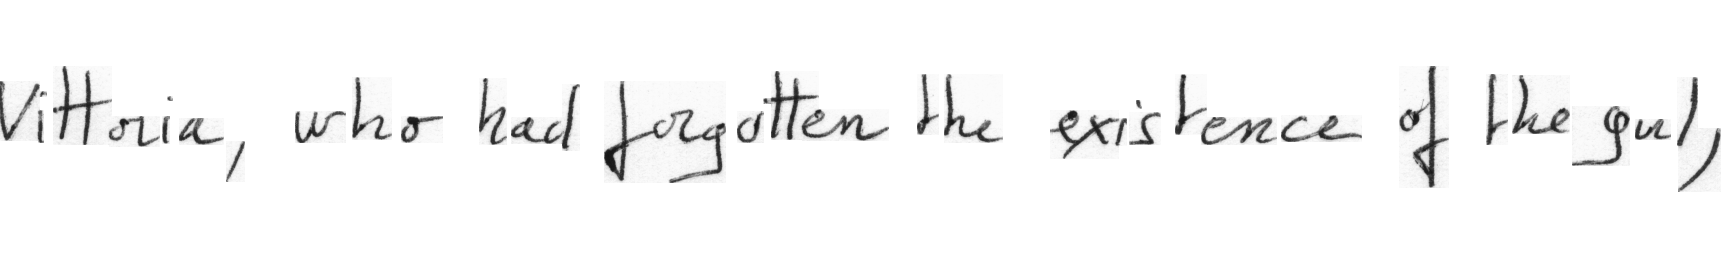 Vittoria, who had forgotten the existence of the girl,